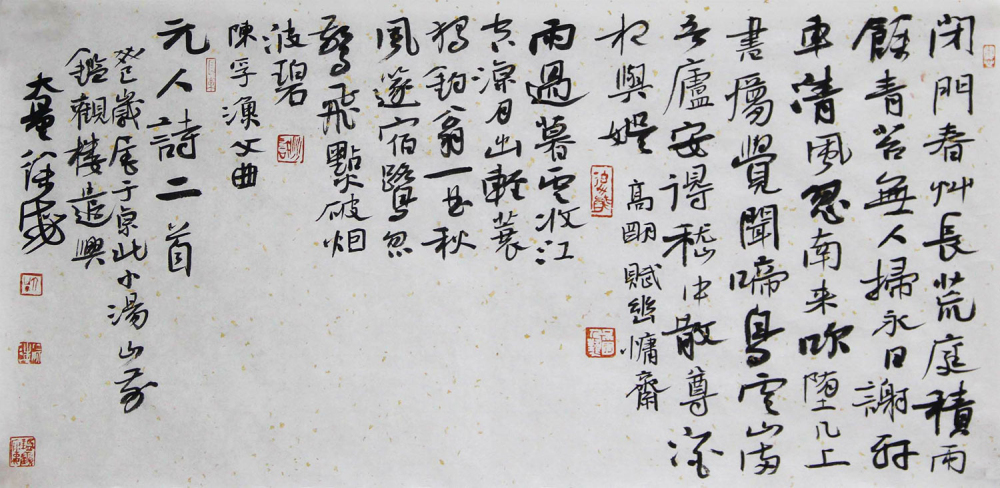 閉門春艸長荒庭積雨
餘青苔無人掃永日謝軒
車清風忽南来吹墮几上
書夢覺聞啼鳥雲山滿
吾廬安得嵇中散尊酒
相與娛
高朙賦幽慵齋
雨過暮雲收江
空涼月出輕蓑
獨釣翁一曲秋
風邃宿鷺忽
驚飛點破烟
波碧
陳孚漁父曲
元人詩二首
癸巳歲尾于京北小湯山前
鑑觀樓遣興
大墨徐